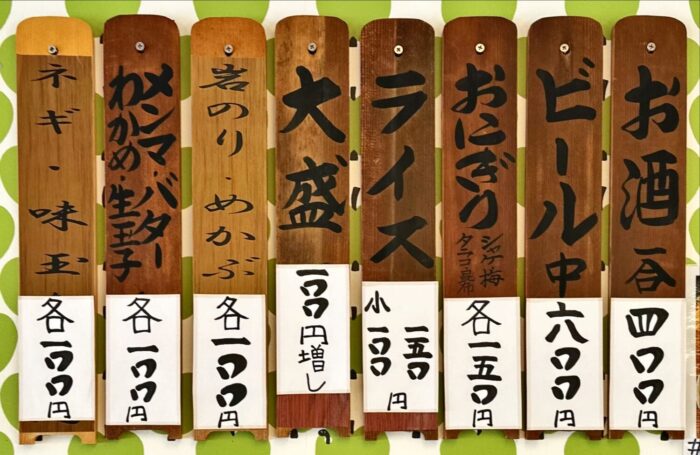 お酒 一合
四〇〇円
ビール中
六〇〇円
おにぎり
シャケ 梅
タラコ 昆布
各一五〇円
ライス
一五〇
小一〇〇
円
大盛
一〇〇円増し
岩のり・めかぶ
各一〇〇円
メンマ・バター
わかめ・生玉子
各一〇〇円
ネギ・味玉
各一〇〇円